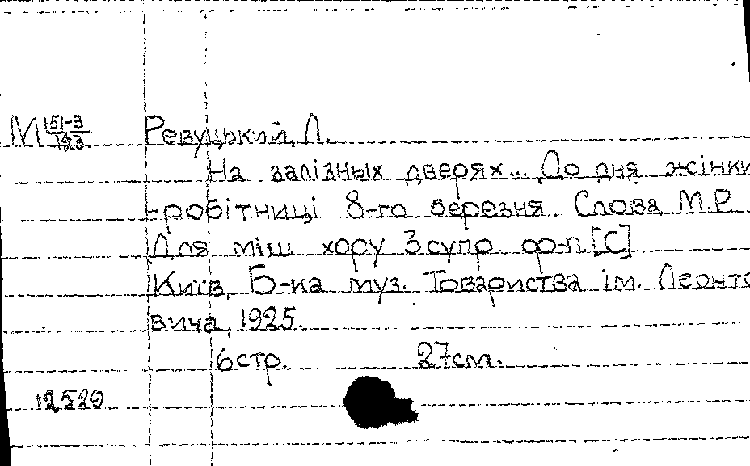 М 151-3/123 Ревуцький, Л.
На залізных дверях.. До дня жінки
-робітниці 8-го березня. Слова М.Р
Для міш хору Зсупр. фо-п. [С]
Київ, Б-ка муз. Товариства ім. Леонто
вича, 1925.
6 стр. 27см.
12520